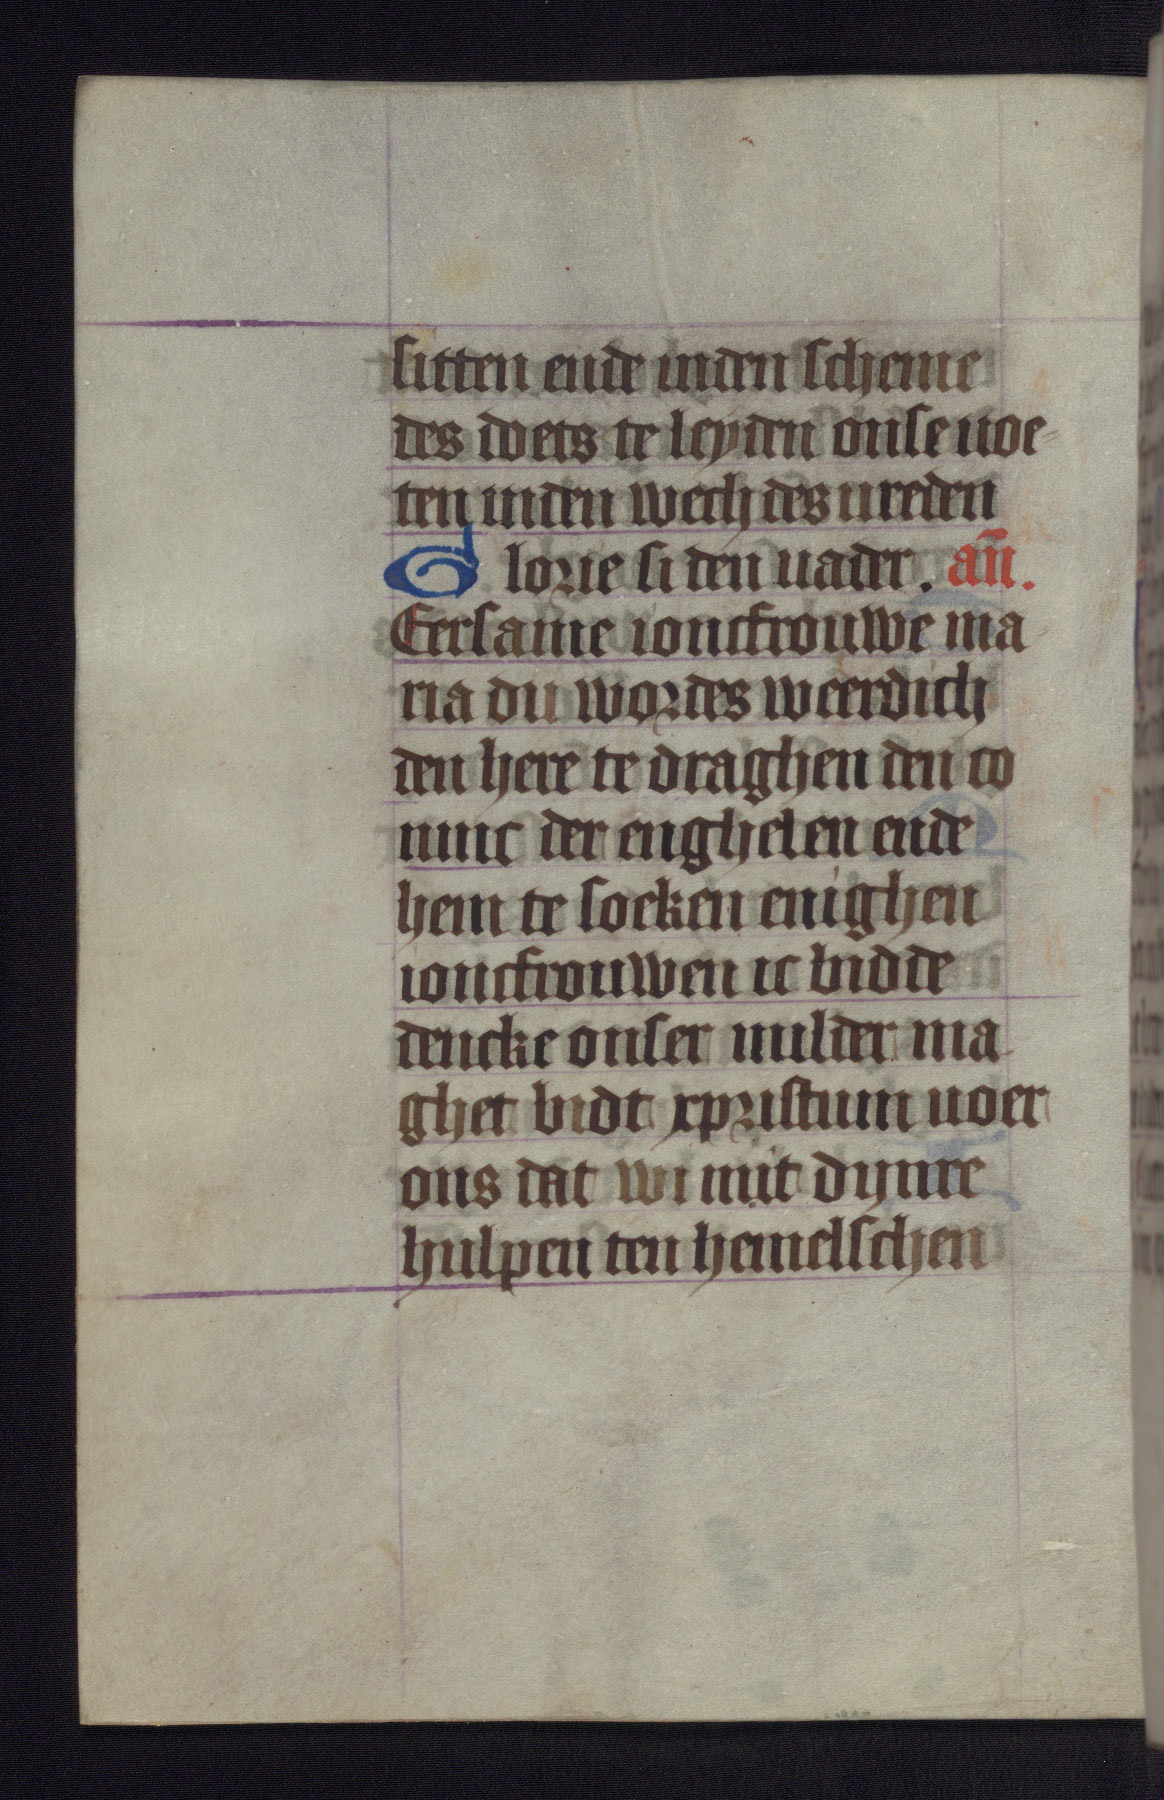 sitten ende inden scheme
des doets te leyden onse uoe-
ten inden wech des ureden
Glorie si den uader. an̄.
Eersame ioncfrouwe ma
ria du wordes weerdich
den here te draghen den co
ninc der enghelen ende
hem te socken enighen
ioncfrouwen ic bidde
dencke onser milder ma
ghet bidt xpristum uoer
ons dat wi mit dynre
hulpen ten hemelschen